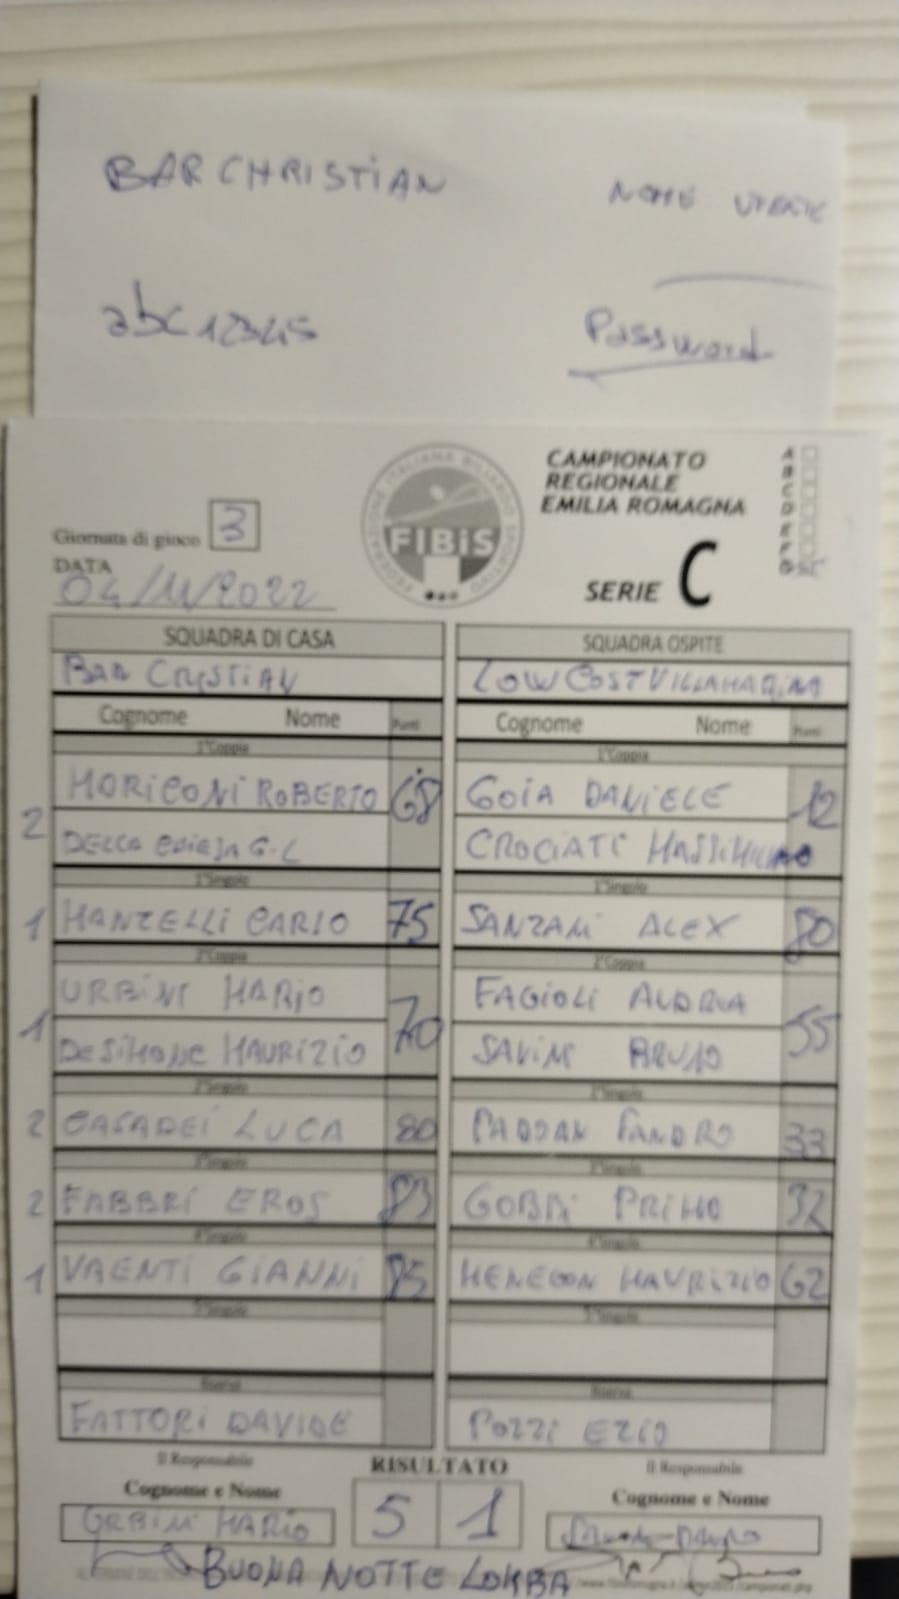 BAR CHRISTIAN
NOME UTENTE
abc12345
Password
CAMPIONATO
REGIONALE
EMILIA ROMAGNA
A
B
C
D
E
F
G
Giornata di gioco 3
FEDERAZIONE ITALIANA BILIARDO SPORTIVO
FIBiS
DATA
04/11/2022
SERIE C
SQUADRA DI CASA
SQUADRA OSPITE
BAR CRISTIAN
LOW COST VILLAMARINA
Cognome Nome Punti
Cognome Nome Punti
1°Coppia
1°Coppia
MORICONI ROBERTO 68
GOIA DANIELE 12
2
DELLA CHIESA G.L
CROCIATI MASSIMILIANO
1°Singolo
1°Singolo
1 MANZELLI CARLO 75
SANZANI ALEX 80
2°Coppia
2°Coppia
URBINI MARIO 70
FAGIOLI ANDREA 55
1
DE SIMONE MAURIZIO
SAVINI BRUNO
2°Singolo
2°Singolo
2 CASADEI LUCA 80
PADOAN SANDRO 33
3°Singolo
3°Singolo
2 FABBRI EROS 83
GOBBI PRIMO 32
4°Singolo
4°Singolo
1 VAENTI GIANNI 85
MENEGON MAURIZIO 62
5°Singolo
5°Singolo
Riserva
Riserva
FATTORI DAVIDE
POZZI EZIO
Il Responsabile
RISULTATO
Il Responsabile
Cognome e Nome
Cognome e Nome
URBINI MARIO
5 1
BUONA NOTTE LOMBA